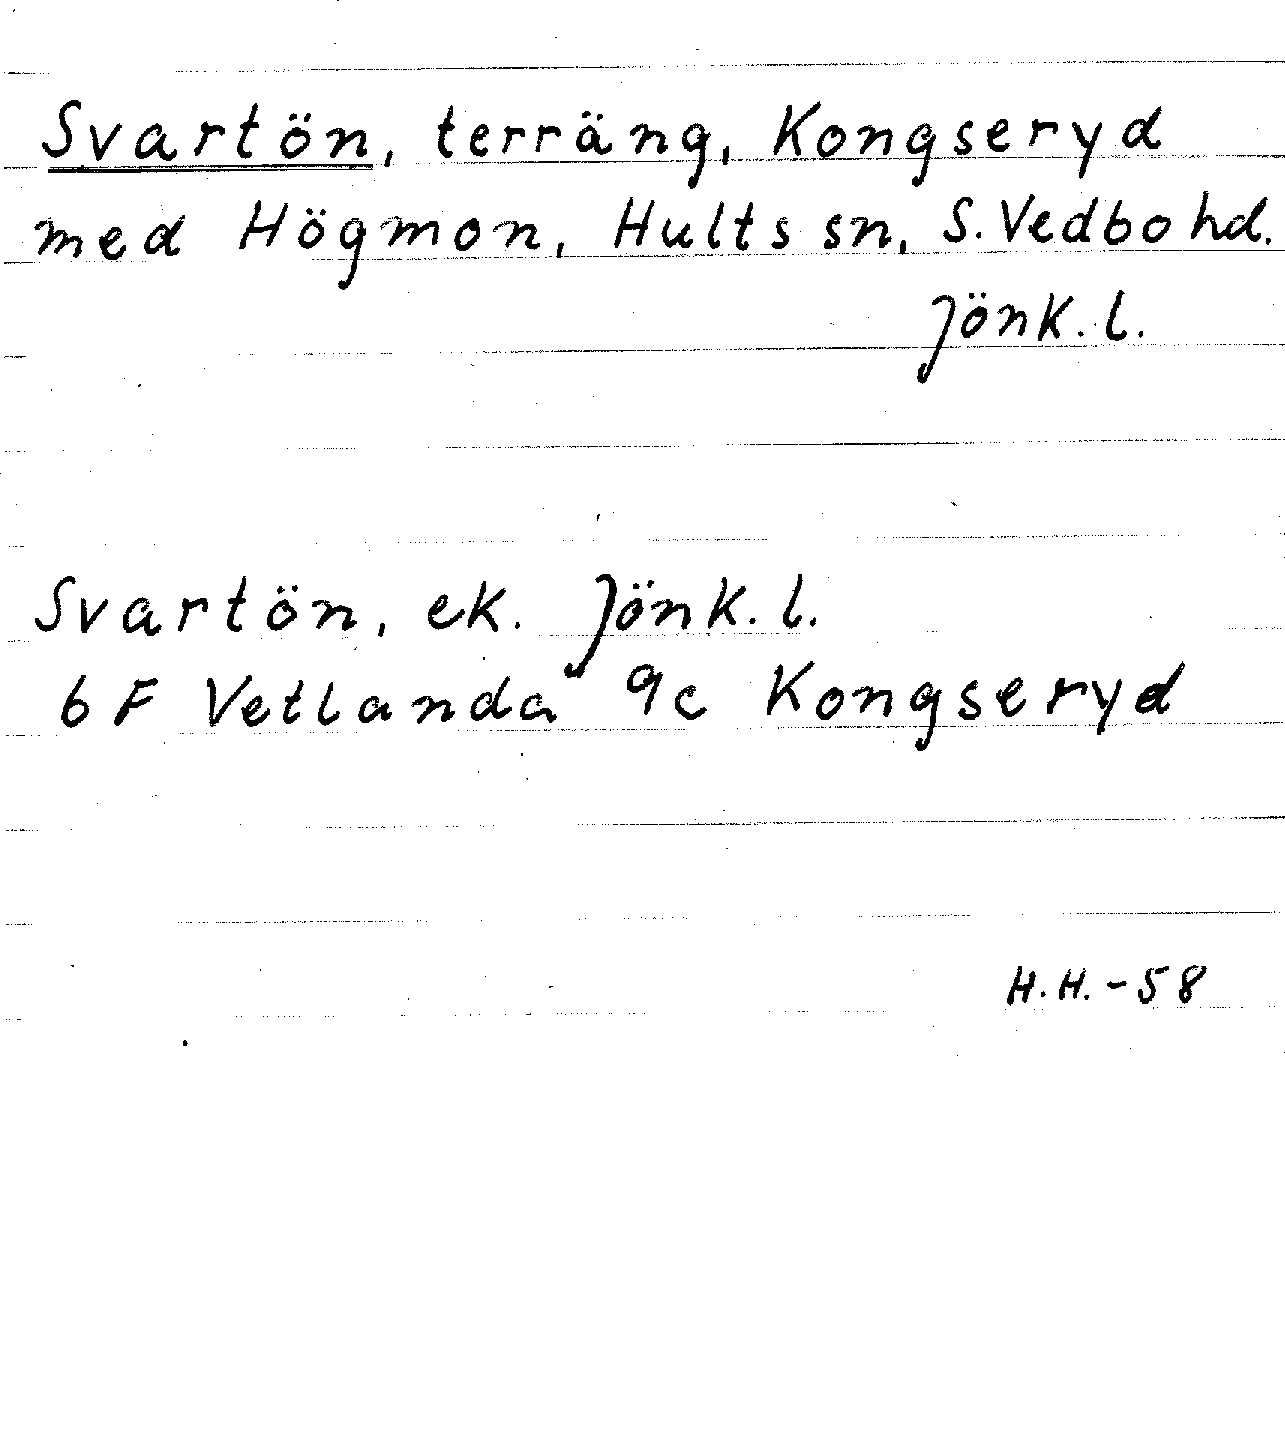 Svartön, terräng, Kongseryd
med Högmon, Hults sn, S. Vedbo hd.
Jönk. l.
Svartön, ek. Jönk. l.
6 F Vetlanda 9c Kongseryd
H.H. - 58